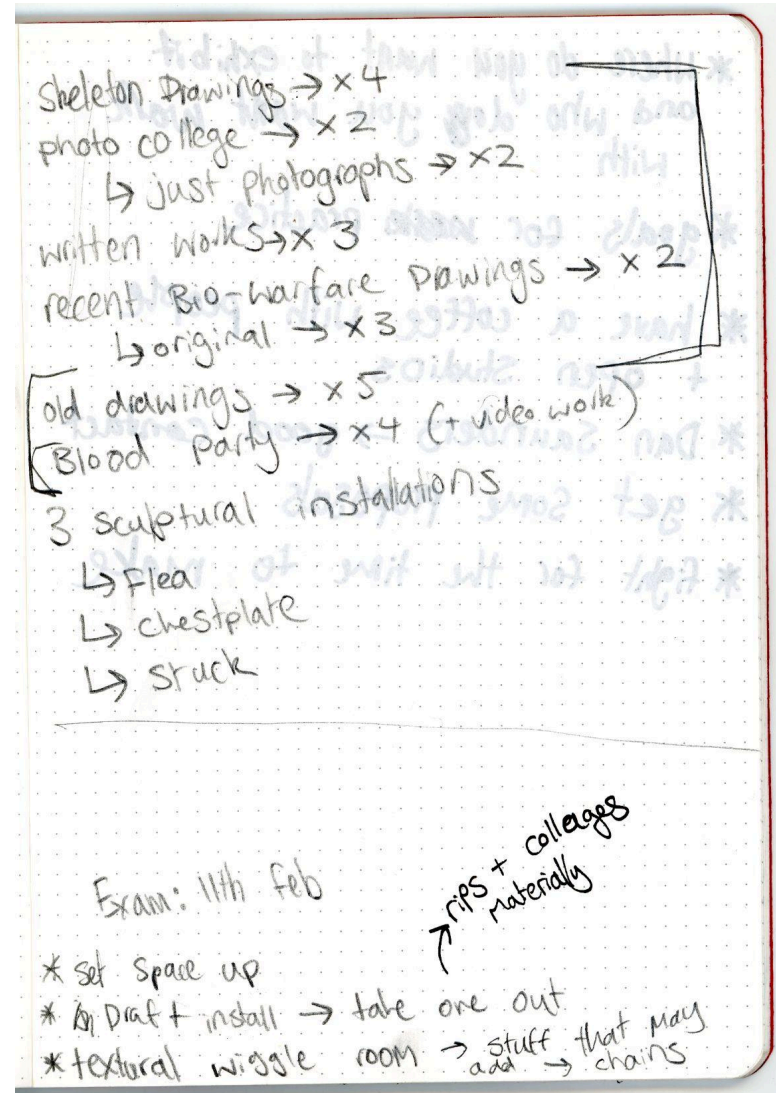 Skeleton Drawings → x 4
photo college → x 2
↳ just photographs → x2
written works → x 3
recent Bio-warfare Drawings → x 2
↳ original → x 3
old drawings → x 5
Blood party → x 4 (+ video work)
3 sculptural installations
↳ Flea
↳ chestplate
↳ stuck
Exam: 11th feb
rips + collages
materially
* set space up
* Draft install → take one out
* textural wiggle room → stuff that may
add → chains